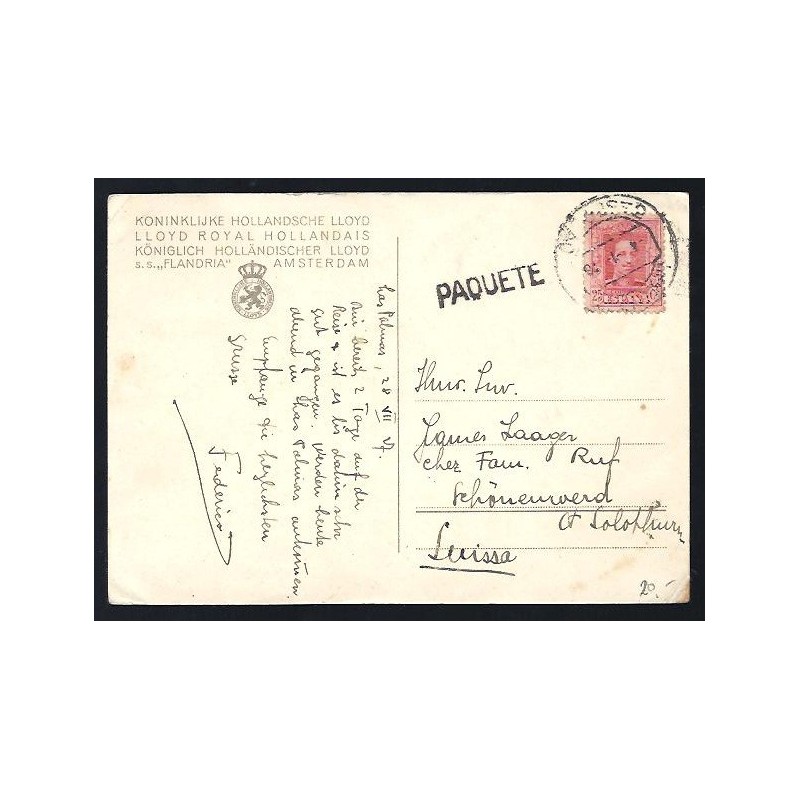 KONINKLIJKE HOLLANDSCHE LLOYD
LLOYD ROYAL HOLLANDAIS
KÖNIGLICH HOLLÄNDISCHER LLOYD
s.s. „FLANDRIA" AMSTERDAM
Las Palmas, 28 VII 27.
Bin bereits 2 Tage auf der
Reise & ist es bis dahin sehr
gut gegangen. Werden heute
abend in Las Palmas ankommen.
Empfange die herzlichsten
Grüsse
Federico
PAQUETE
25
James Laager
chez Fam. Ruf
Schönenwerd
Ct Solothurn
Suissa
20.-